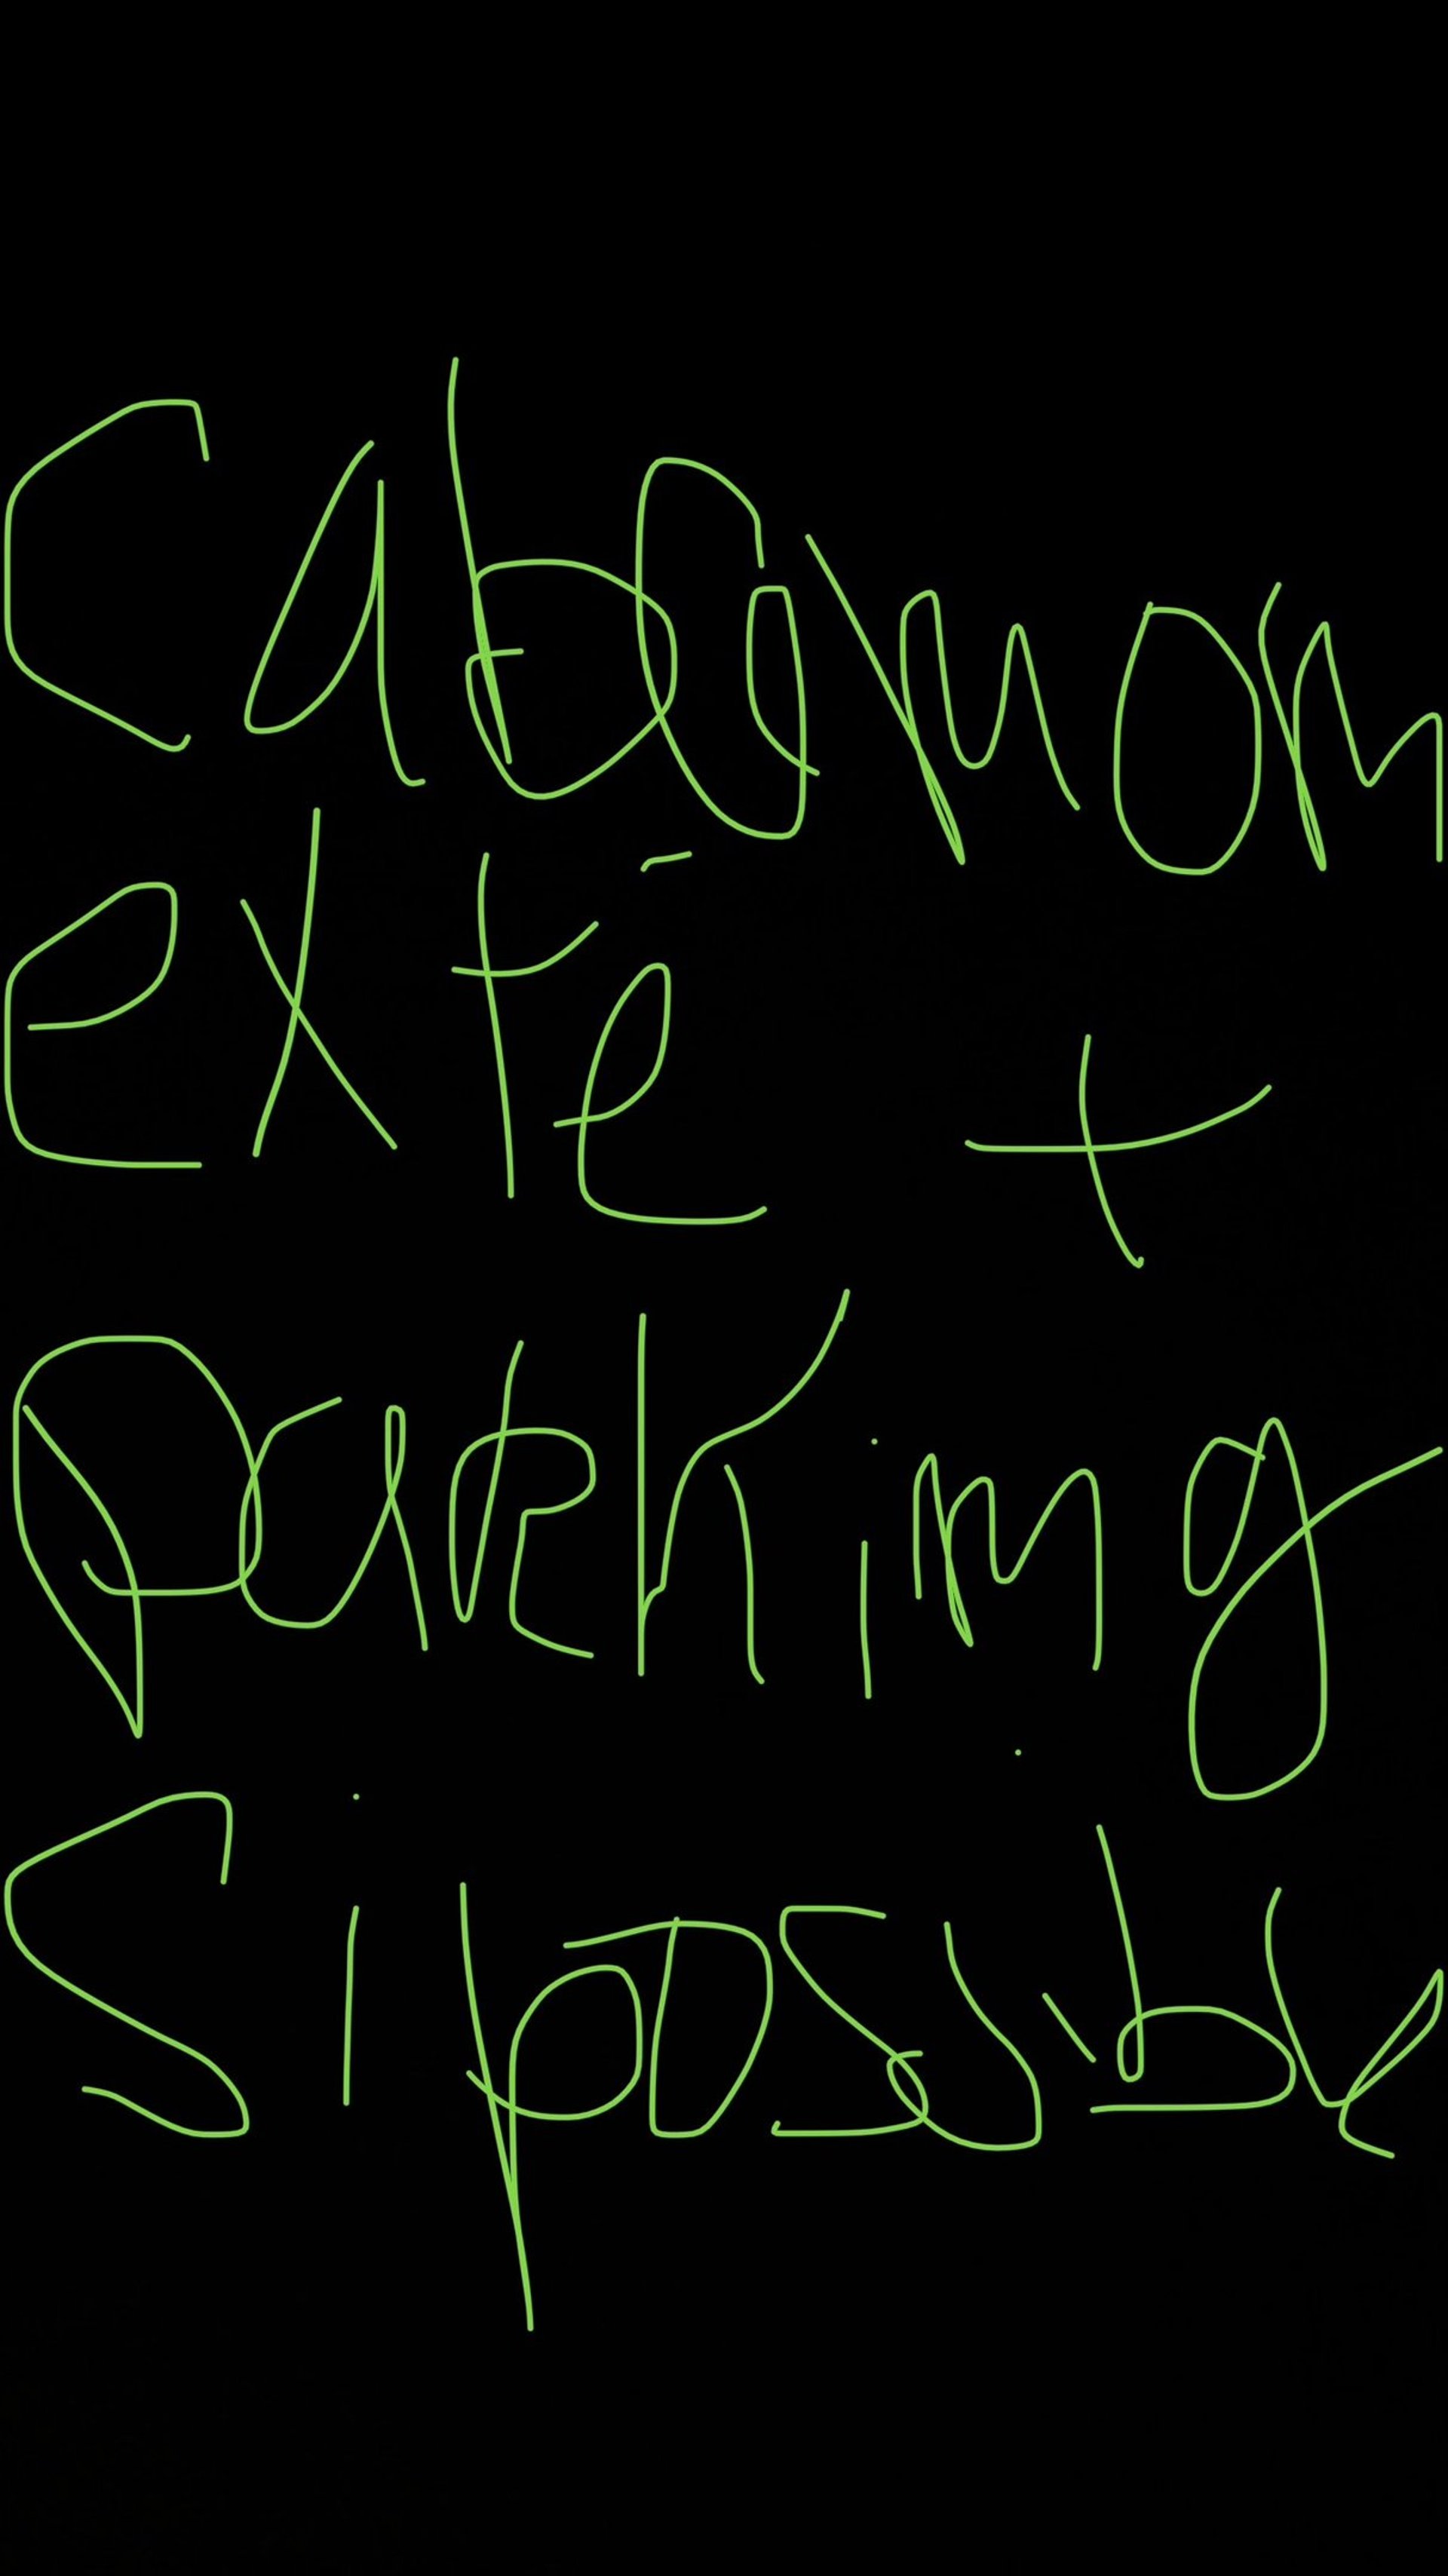 cabanon
exté +
parking
si possible